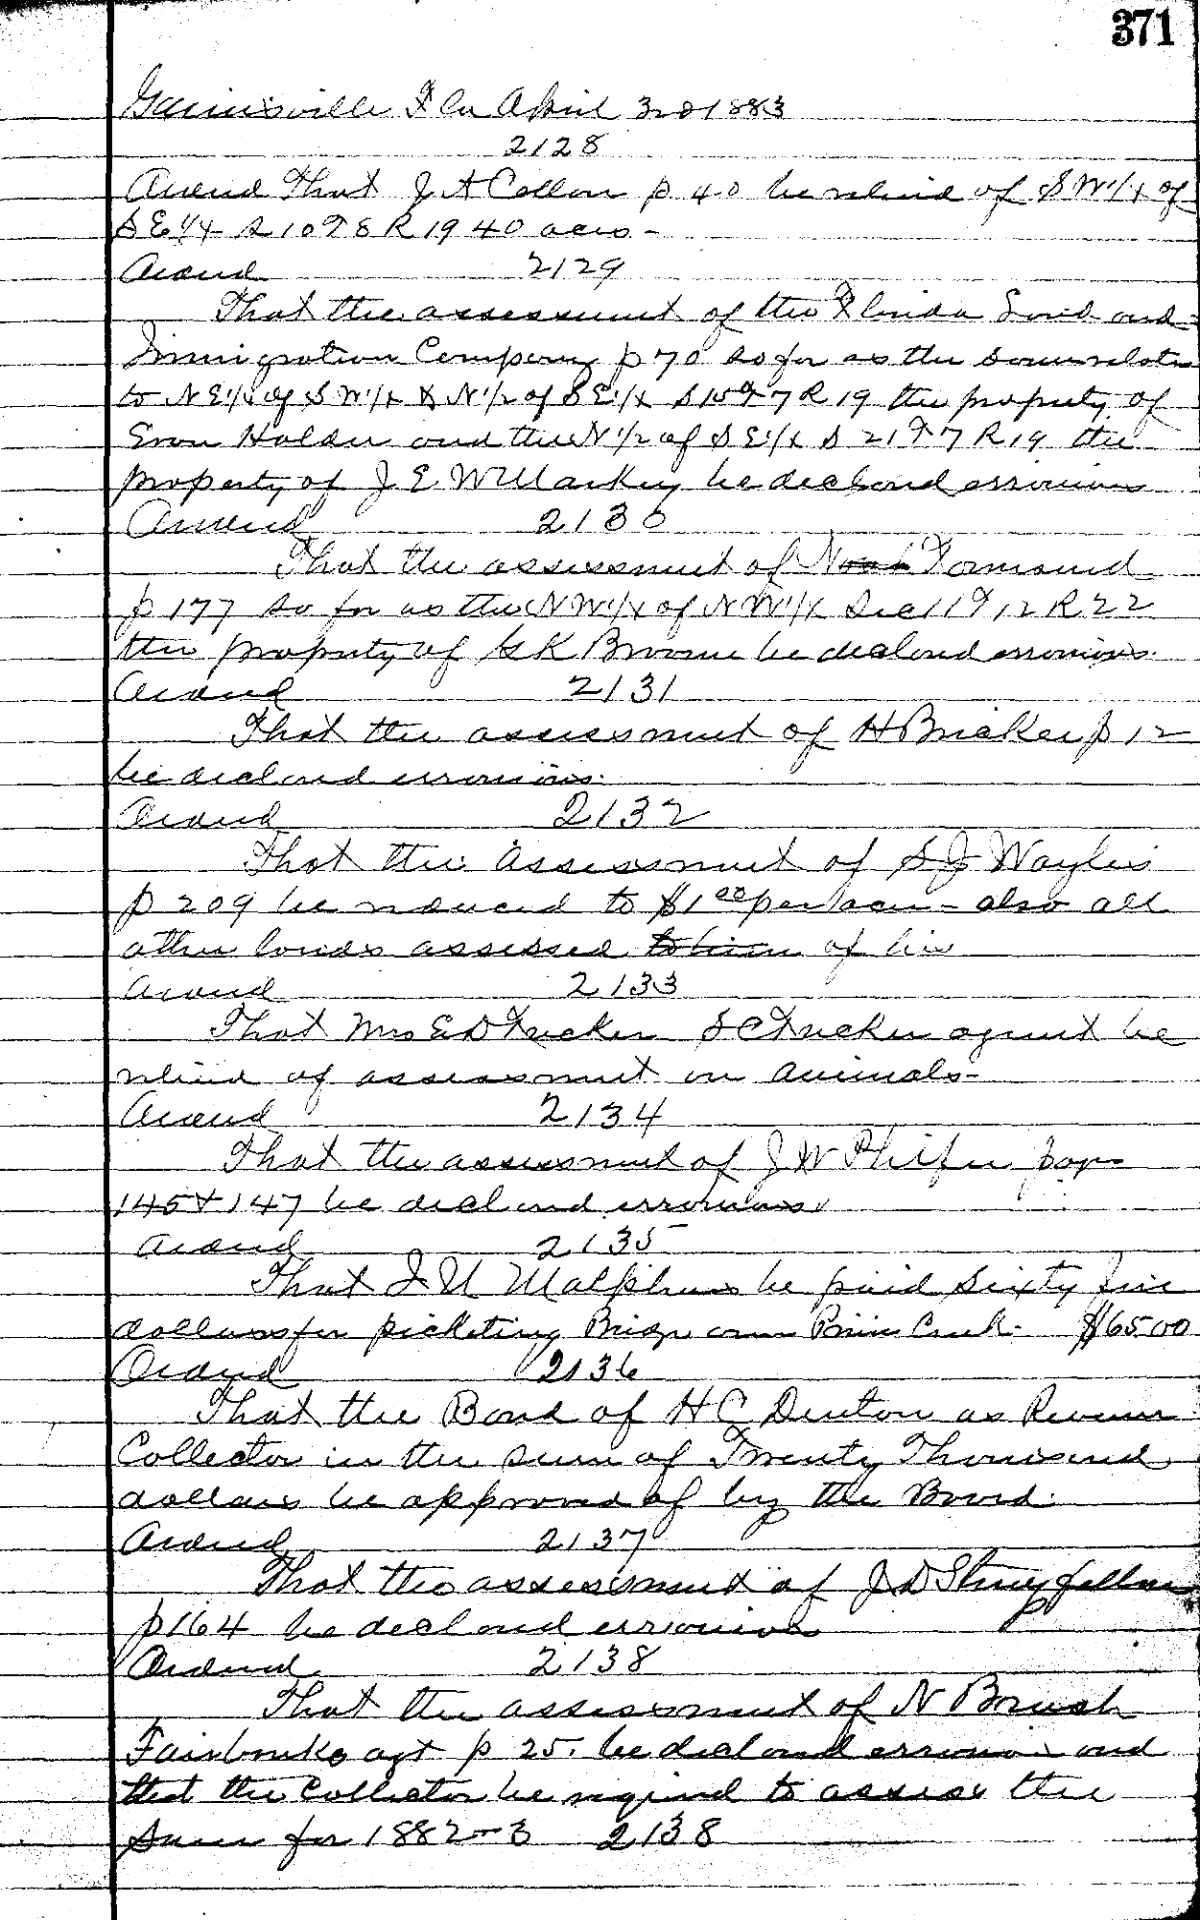 371
Gainesville Fla April 3rd 1883
2128
Ordered That J A Collon p 40 be relieved of SW 1/4 of
SE 1/4 S 10 T 8 R 19 40 acres -
Ordered 2129
That the assessment of the Florida Land and
Immigration Company p 70 so far as the same relates
to NE 1/4 of SW 1/4 & N 1/2 of SE 1/4 S 15 T 7 R 19 the property of
Holder and the N 1/2 of SE 1/4 S 21 T 7 R 19 the
property of J E W Markey be declared erroneous
Ordered 2130
That the assessment of Noah
p 177 so far as the NW 1/4 of NW 1/4 Sec 11 T 12 R 22
the property of G K Broome be declared erroneous.
Ordered 2131
That the assessment of H Bricker p 12
be declared erroneous.
Ordered 2132
That the assessment of S J
p 209 be reduced to $1 00 per acre - also all
other lands assessed to him of his
Ordered 2133
That Mrs E D Tucker S C Tucker agent be
relieved of assessment on animals -
Ordered 2134
That the assessment of J W Phifer page
145 & 147 be declared erroneous.
Ordered 2135
That J U Malphurs be paid Sixty five
dollars for picketing Bridge over Creek - $65 00
Ordered 2136
That the Bond of H C Denton as Revenue
Collector in the sum of Twenty Thousand
dollars be approved of by the Board.
Ordered 2137
That the assessment of J D Stringfellow
p 164 be declared erroneous
Ordered 2138
That the assessment of N Brush
Fairbanks agt p 25. be declared erroneous and
that the Collector be required to assess the
Same for 1882-3 2138